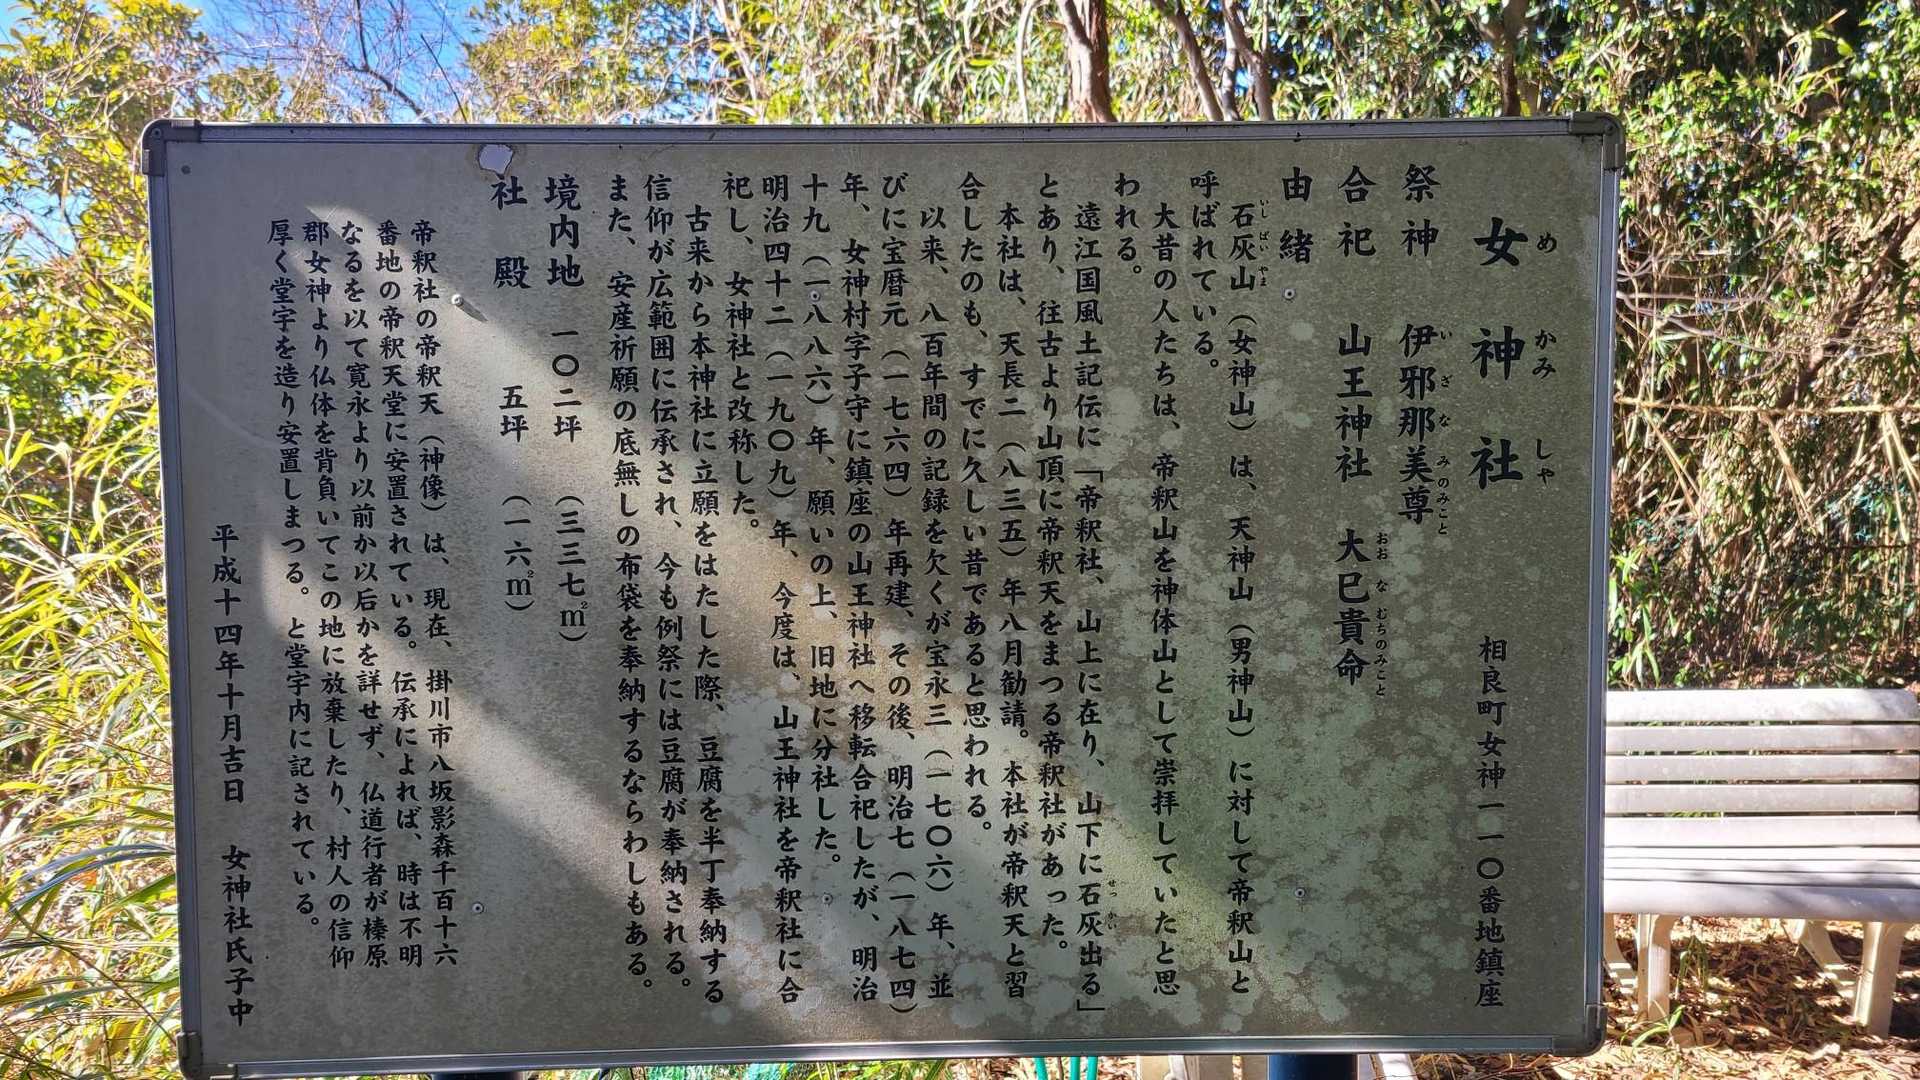 女神社 相良町女神一一〇番地鎮座
めかみしゃ
祭神 伊邪那美尊
いざなみのみこと
合祀 山王神社 大巳貴命
おおなむちのみこと
由緒
石灰山（女神山）は、天神山（男神山）に対して帝釈山と
いしばいやま
呼ばれている。
大昔の人たちは、帝釈山を神体山として崇拝していたと思
われる。
遠江国風土記伝に「帝釈社、山上に在り、山下に石灰出る」
せっかい
とあり、往古より山頂に帝釈天をまつる帝釈社があった。
本社は、天長二（八三五）年八月勧請。本社が帝釈天と習
合したのも、すでに久しい昔であると思われる。
以来、八百年間の記録を欠くが宝永三（一七〇六）年、並
びに宝暦元（一七六四）年再建、その後、明治七（一八七四）
年、女神村字子守に鎮座の山王神社へ移転合祀したが、明治
十九（一八八六）年、願いの上、旧地に分社した。
明治四十二（一九〇九）年、今度は、山王神社を帝釈社に合
祀し、女神社と改称した。
古来から本神社に立願をはたした際、豆腐を半丁奉納する
信仰が広範囲に伝承され、今も例祭には豆腐が奉納される。
また、安産祈願の底無しの布袋を奉納するならわしもある。
境内地 一〇二坪 （三三七㎡）
社殿 五坪 （一六㎡）
帝釈社の帝釈天（神像）は、現在、掛川市八坂影森千百十六
番地の帝釈天堂に安置されている。伝承によれば、時は不明
なるを以て寛永より以前か以后かを詳せず、仏道行者が榛原
郡女神より仏体を背負いてこの地に放棄したり、村人の信仰
厚く堂宇を造り安置しまつる。と堂宇内に記されている。
平成十四年十月吉日 女神社氏子中